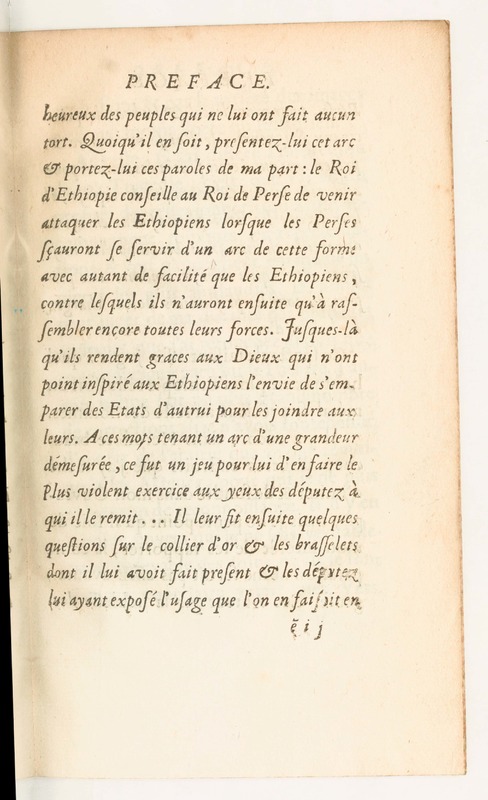 PREFACE.
heureux des peuples qui ne lui ont fait aucun
tort. Quoiqu'il en ſoit, preſentez-lui cet arc
& portez-lui ces paroles de ma part : le Roi
d'Ethiopie conſeille au Roi de Perſe de venir
attaquer les Ethiopiens lorſque les Perſes
ſçauront ſe ſervir d'un arc de cette forme
avec autant de facilité que les Ethiopiens,
contre leſquels ils n'auront enſuite qu'à raſ-
ſembler encore toutes leurs forces. Juſques-là
qu'ils rendent graces aux Dieux qui n'ont
point inſpiré aux Ethiopiens l'envie de s'em-
parer des Etats d'autrui pour les joindre aux
leurs. A ces mots tenant un arc d'une grandeur
démeſurée, ce fut un jeu pour lui d'en faire le
plus violent exercice aux yeux des députez à
qui il le remit... Il leur fit enſuite quelques
queſtions ſur le collier d'or & les braſſelets
dont il lui avoit fait preſent & les députez
lui ayant expoſé l'uſage que l'on en faiſoit en
ẽ iij